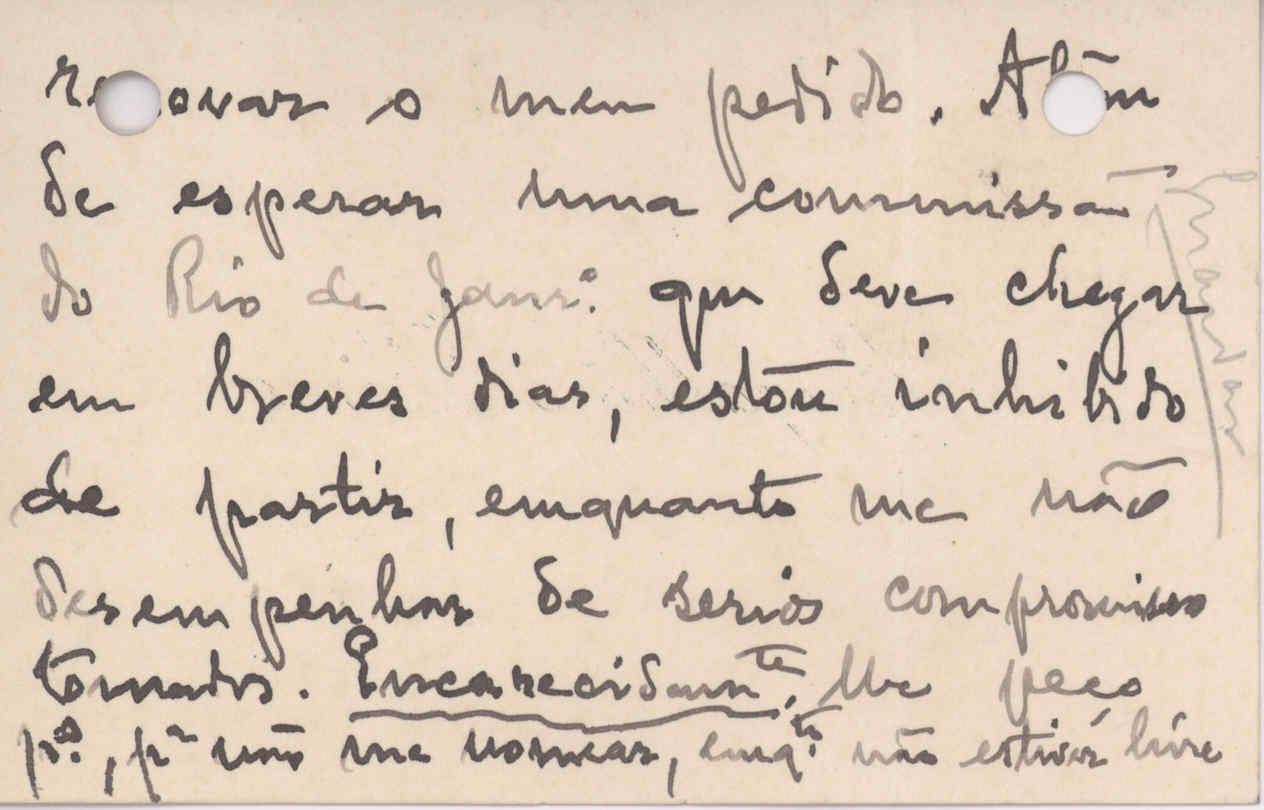 renovar o meu pedido. Além
de esperar uma commissão
do Rio de Janr.º que deve chegar
em breves dias, estou inhibido
de partir, emquanto me não
desempenhar de serios compromissos
tomados. Encarecidam.te, lhe peço
p.s, p.ª não me nomear, emq.to não estiver livre